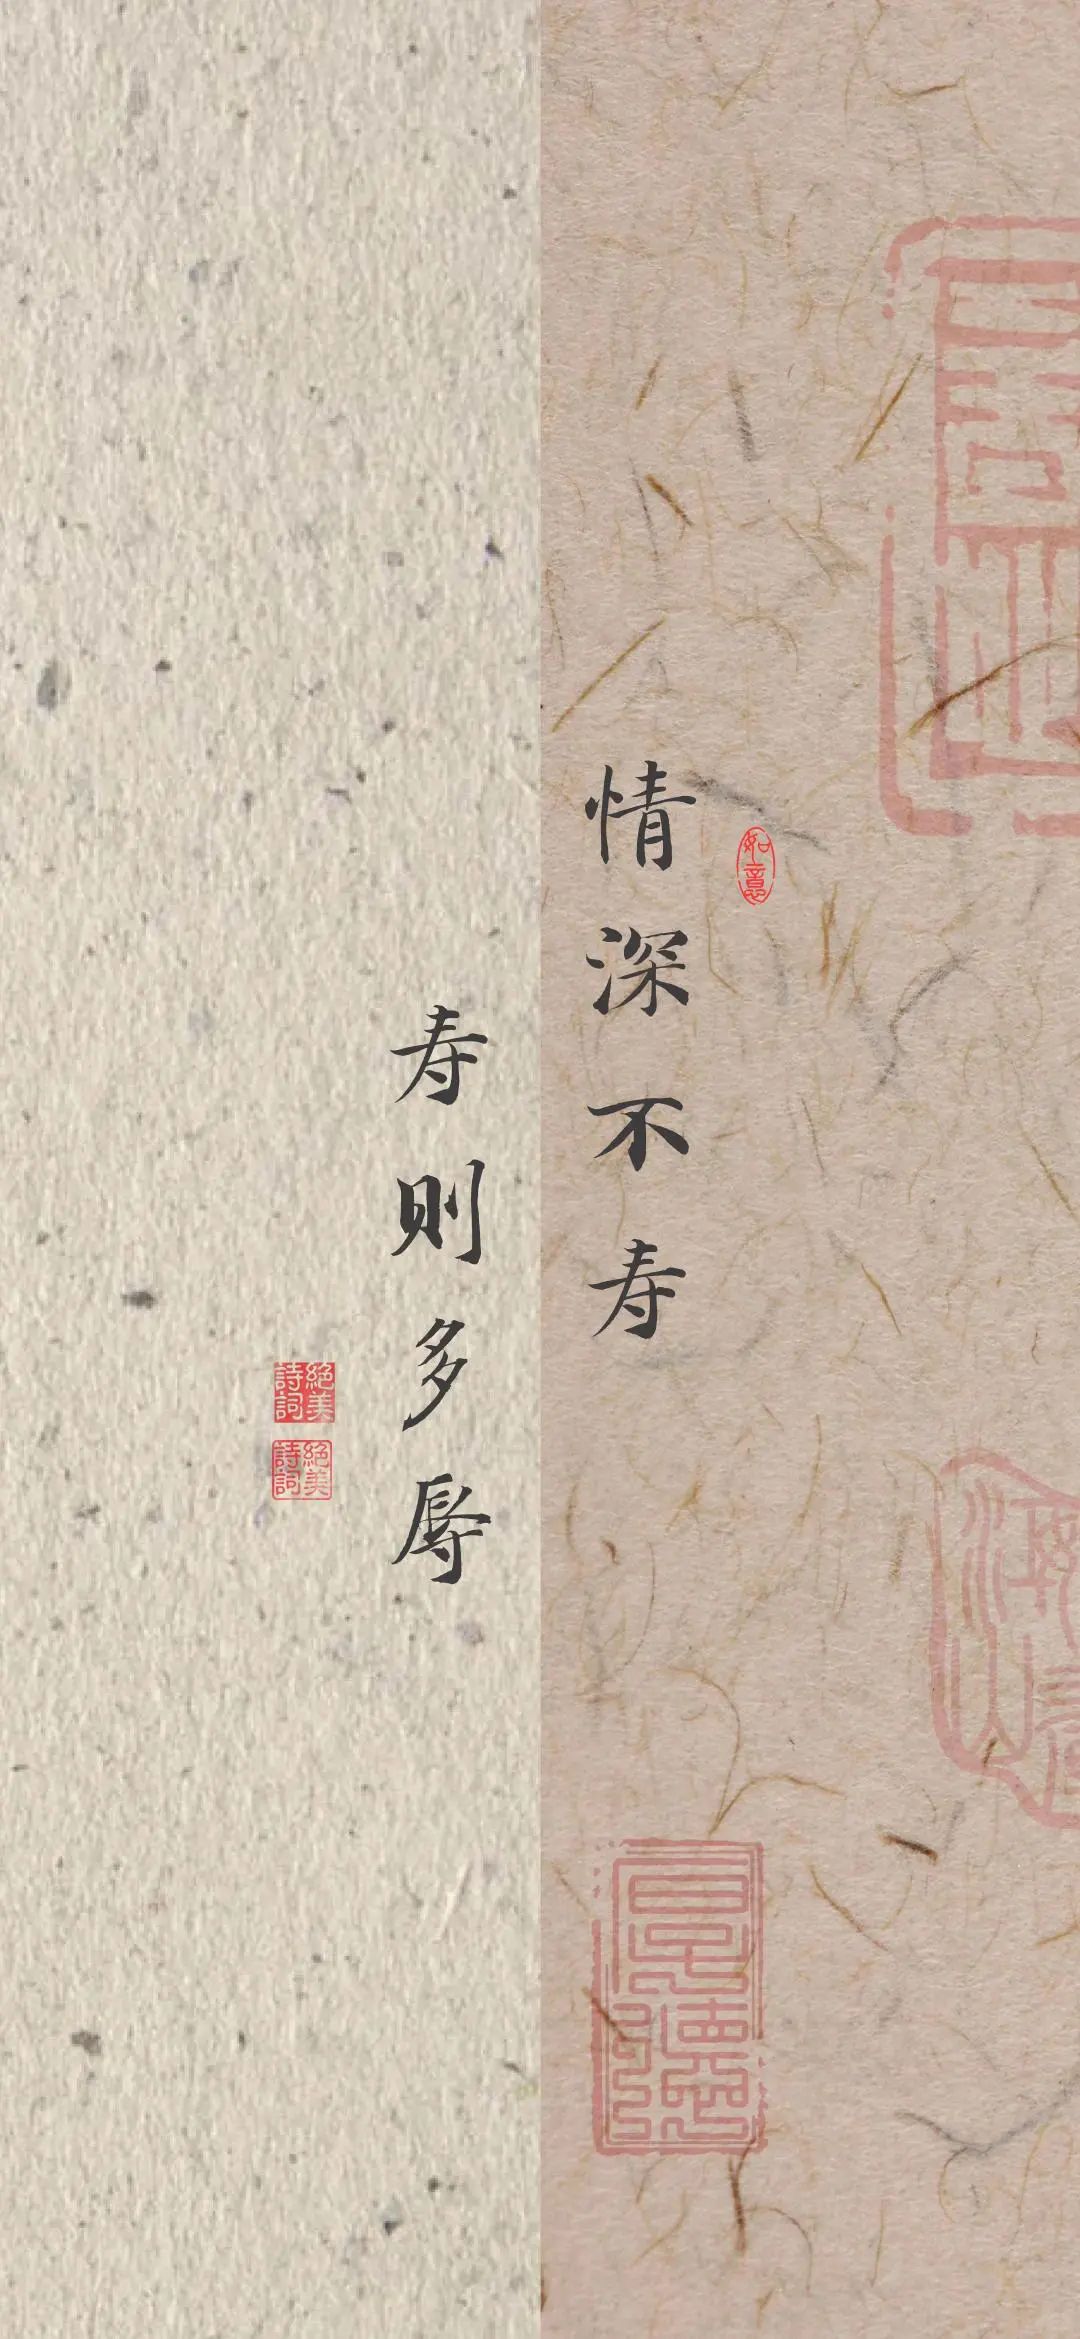 情深不寿
如意
寿则多辱
絕美
詩詞
絕美
詩詞